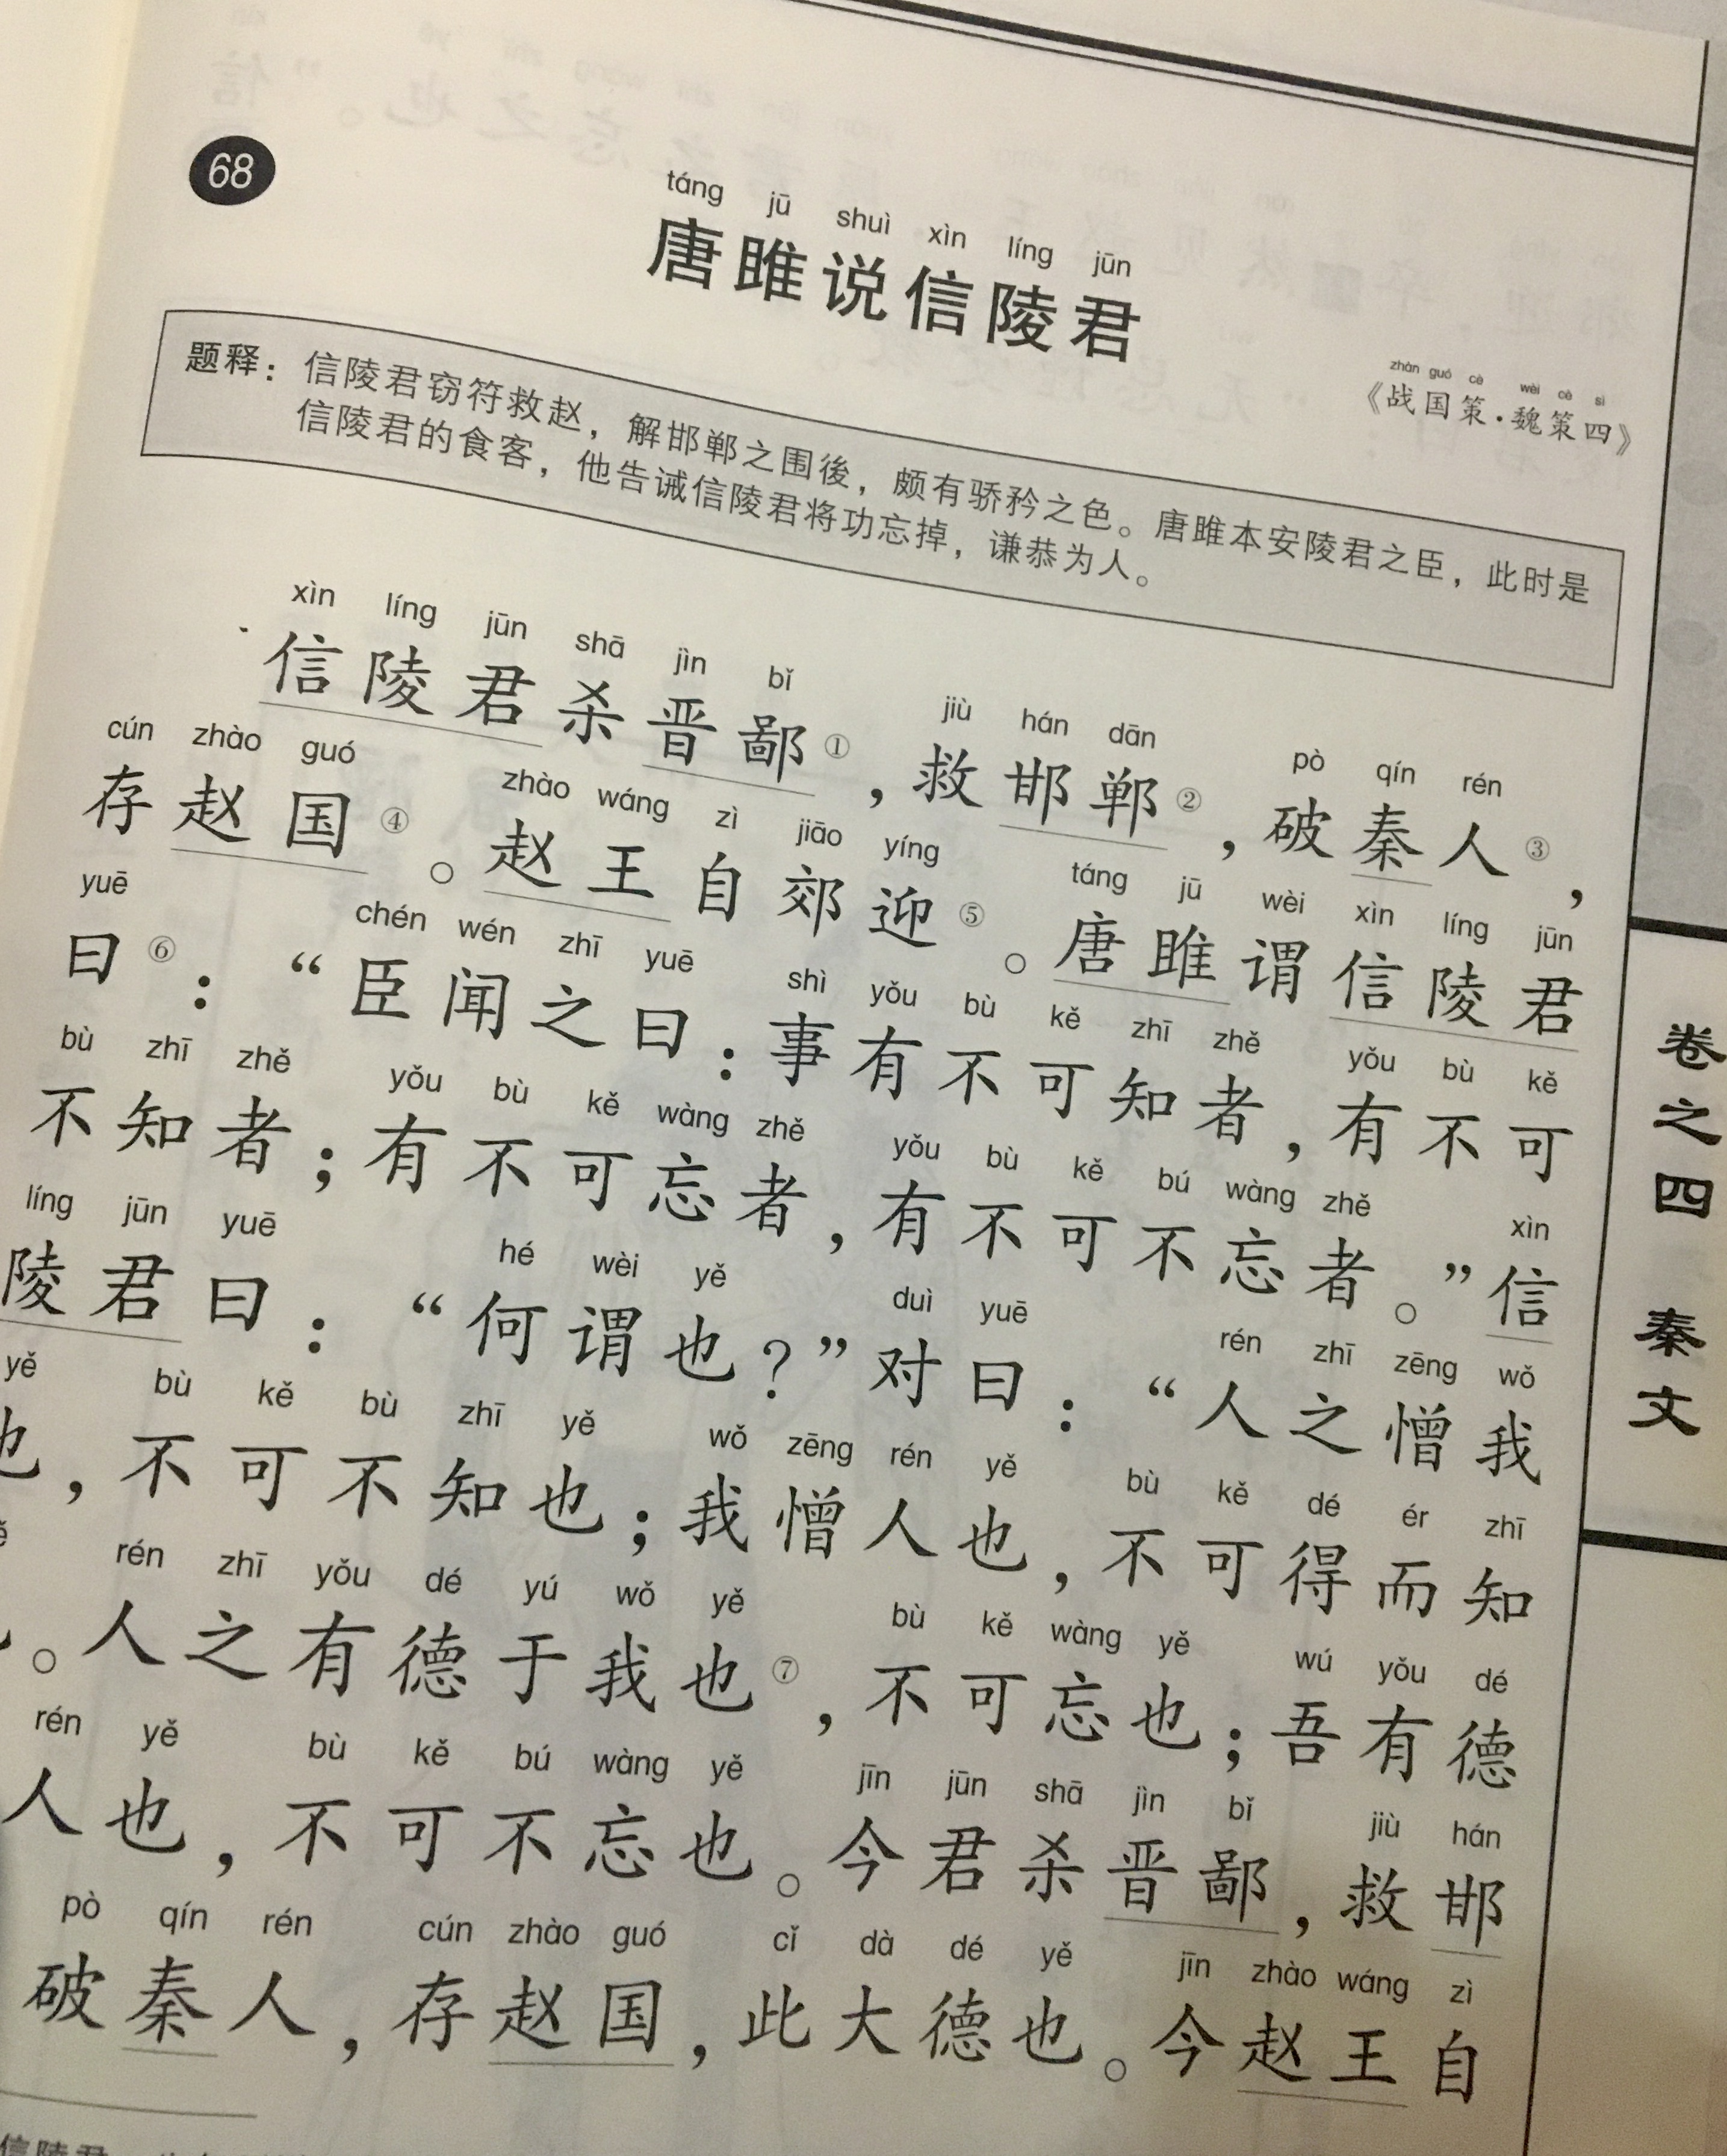 68
táng jū shuì xìn líng jūn
唐雎说信陵君
zhàn guó cè wèi cè sì
《战国策·魏策四》
题释：信陵君窃符救赵，解邯郸之围後，颇有骄矜之色。唐雎本安陵君之臣，此时是
信陵君的食客，他告诫信陵君将功忘掉，谦恭为人。
xìn líng jūn shā jìn bǐ jiù hán dān pò qín rén
信陵君杀晋鄙①，救邯郸②，破秦人③，
cún zhào guó zhào wáng zì jiāo yíng táng jū wèi xìn líng jūn
存赵国④。赵王自郊迎⑤。唐雎谓信陵君
yuē chén wén zhī yuē shì yǒu bù kě zhī zhě yǒu bù kě
曰⑥：“臣闻之曰：事有不可知者，有不可
bù zhī zhě yǒu bù kě wàng zhě yǒu bù kě bú wàng zhě xìn
不知者；有不可忘者，有不可不忘者。”信
líng jūn yuē hé wèi yě duì yuē rén zhī zēng wǒ
陵君曰：“何谓也？”对曰：“人之憎我
yě bù kě bù zhī yě wǒ zēng rén yě bù kě dé ér zhī
也，不可不知也；我憎人也，不可得而知
rén zhī yǒu dé yú wǒ yě bù kě wàng yě wú yǒu dé
。人之有德于我也⑦，不可忘也；吾有德
rén yě bù kě bú wàng yě jīn jūn shā jìn bǐ jiù hán
人也，不可不忘也。今君杀晋鄙，救邯
pò qín rén cún zhào guó cǐ dà dé yě jīn zhào wáng zì
破秦人，存赵国，此大德也。今赵王自
信陵君
卷之四 秦文